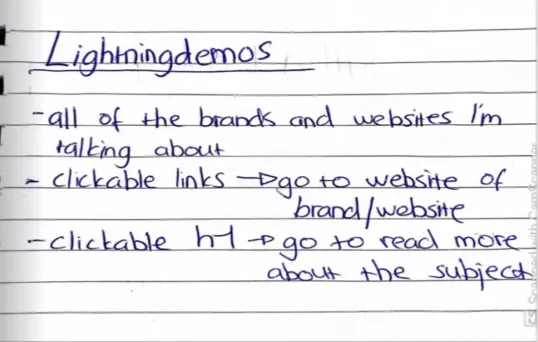 Lightningdemos
- all of the brands and websites I'm
talking about
- clickable links → go to website of
brand/website
- clickable h1 → go to read more
about the subject
CS Scanned with CamScanner